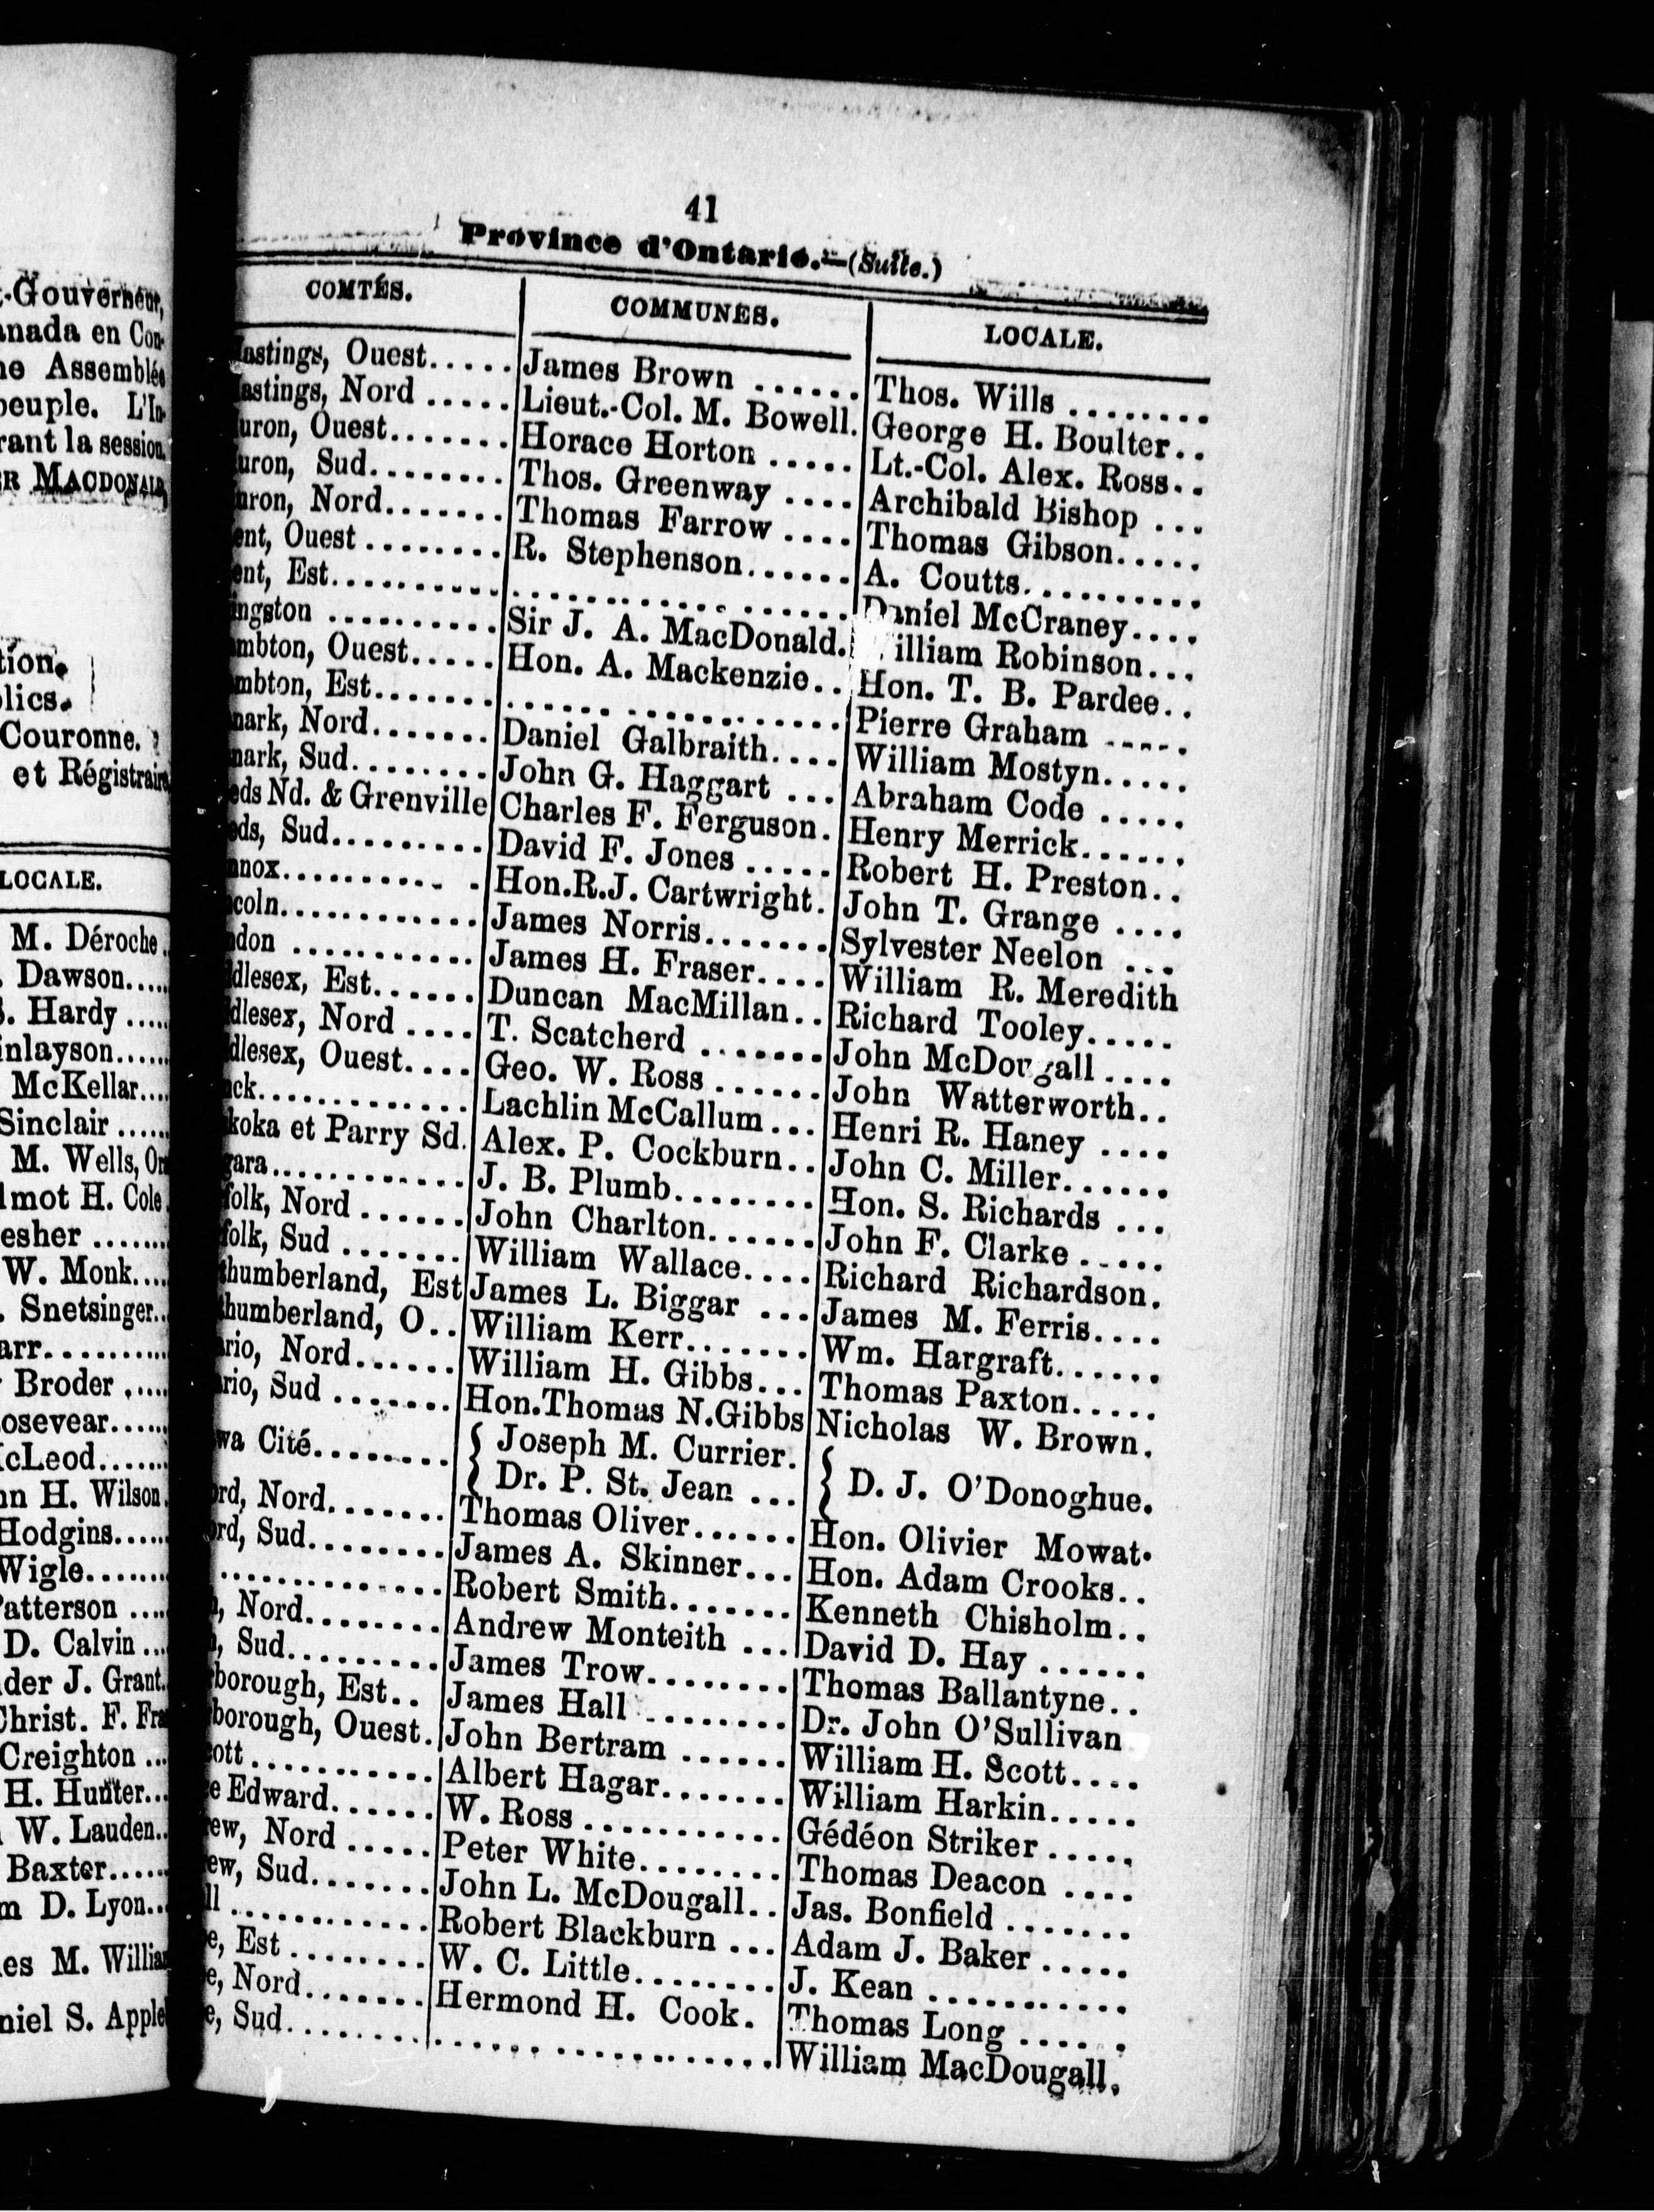 -Gouverneur,
anada en Con-
ne Assemblée
peuple. L'In-
rant la session,
ER MACDONALD,
tion.
lics.
Couronne.
et Régistraire
LOCALE.
M. Déroche.
Dawson.....
S. Hardy .....
inlayson......
McKellar....
Sinclair ......
M. Wells, On
lmot H. Cole.
esher .......
W. Monk....
. Snetsinger..
arr..........
Broder .....
osevear......
cLeod.......
nn H. Wilson.
Hodgins......
Wigle.......
Patterson ....
D. Calvin ...
der J. Grant.
Christ. F. Fra
Creighton ...
H. Hunter...
W. Lauden..
Baxter......
m D. Lyon...
es M. William
niel S. Apple
41
Province d'Ontario.—(Suite.)
COMTÉS. COMMUNES. LOCALE.
astings, Ouest..... James Brown ...... Thos. Wills ........
astings, Nord ..... Lieut.-Col. M. Bowell. George H. Boulter..
uron, Ouest....... Horace Horton ..... Lt.-Col. Alex. Ross..
uron, Sud........ Thos. Greenway .... Archibald Bishop ...
uron, Nord....... Thomas Farrow .... Thomas Gibson.....
ent, Ouest ........ R. Stephenson...... A. Coutts..........
ent, Est.......... .................... Daniel McCraney....
ingston .......... Sir J. A. MacDonald. William Robinson...
ambton, Ouest..... Hon. A. Mackenzie.. Hon. T. B. Pardee..
ambton, Est....... .................... Pierre Graham .....
nark, Nord....... Daniel Galbraith.... William Mostyn.....
nark, Sud........ John G. Haggart ... Abraham Code .....
eds Nd. & Grenville Charles F. Ferguson. Henry Merrick......
eds, Sud......... David F. Jones ..... Robert H. Preston..
nnox........... Hon.R.J. Cartwright. John T. Grange ....
coln............ James Norris....... Sylvester Neelon ...
ndon ........... James H. Fraser.... William R. Meredith
dlesex, Est...... Duncan MacMillan.. Richard Tooley.....
dlesex, Nord .... T. Scatcherd ....... John McDougall ....
dlesex, Ouest.... Geo. W. Ross ...... John Watterworth..
ck............. Lachlin McCallum ... Henri R. Haney ....
koka et Parry Sd. Alex. P. Cockburn.. John C. Miller......
gara............ J. B. Plumb........ Hon. S. Richards ...
folk, Nord ...... John Charlton...... John F. Clarke .....
folk, Sud ....... William Wallace.... Richard Richardson.
humberland, Est James L. Biggar ... James M. Ferris....
humberland, O.. William Kerr....... Wm. Hargraft......
rio, Nord...... William H. Gibbs... Thomas Paxton.....
rio, Sud ....... Hon.Thomas N.Gibbs Nicholas W. Brown.
wa Cité......... { Joseph M. Currier.
{ Dr. P. St. Jean ... { D. J. O'Donoghue.
ord, Nord....... Thomas Oliver...... Hon. Olivier Mowat.
ord, Sud........ James A. Skinner... Hon. Adam Crooks..
.............. Robert Smith....... Kenneth Chisholm..
, Nord........ Andrew Monteith ... David D. Hay ......
, Sud......... James Trow........ Thomas Ballantyne..
borough, Est.. James Hall ........ Dr. John O'Sullivan
borough, Ouest. John Bertram ...... William H. Scott....
cott ............ Albert Hagar....... William Harkin.....
e Edward...... W. Ross ........... Gédéon Striker .....
ew, Nord ..... Peter White........ Thomas Deacon ....
ew, Sud....... John L. McDougall.. Jas. Bonfield .......
ll ............ Robert Blackburn ... Adam J. Baker .....
e, Est ........ W. C. Little........ J. Kean ...........
e, Nord....... Hermond H. Cook. Thomas Long ......
e, Sud........ .................... William MacDougall.